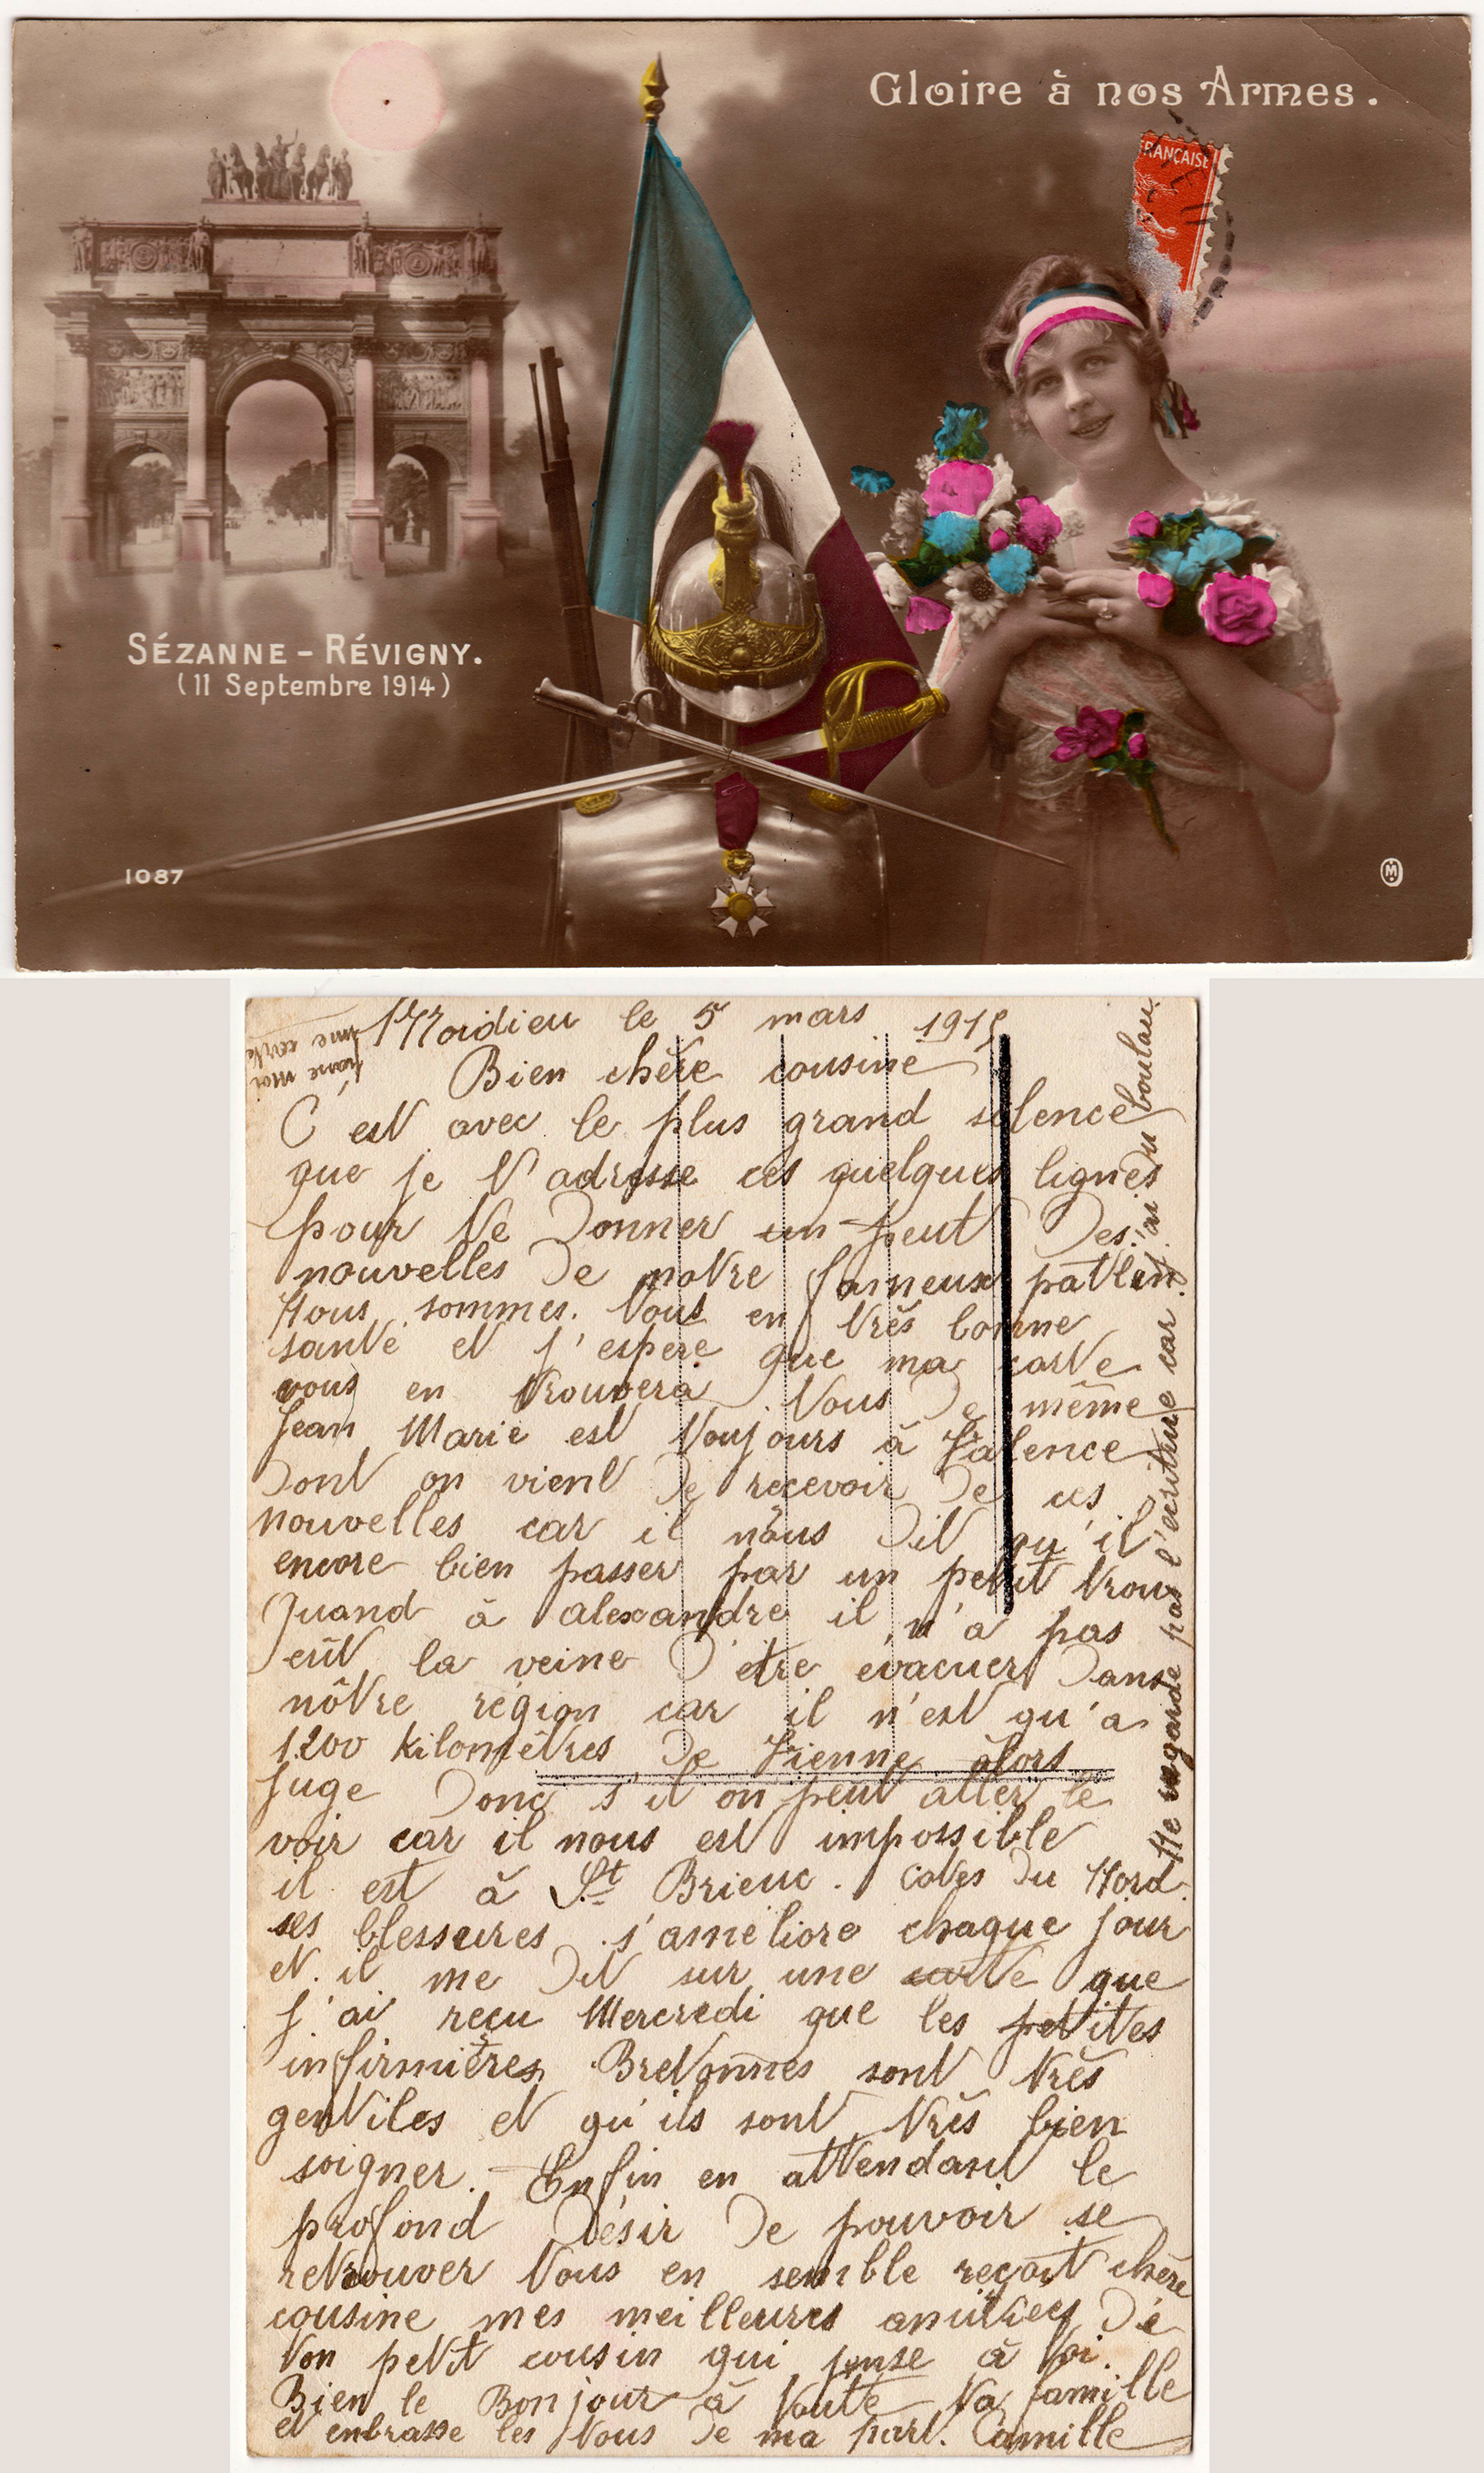 Gloire à nos Armes.
FRANÇAISE
SÉZANNE - RÉVIGNY.
(11 Septembre 1914)
1087
M
Moidieu le 5 mars 1915
Bien chère cousine
C est avec le plus grand silence
que je t'adresse ces quelques lignes
pour te donner un peut des
nouvelles de notre fameux patlin.
Nous sommes. tous en très bonne
santé et j'espere que ma carte
vous en trouvera tous de même
Jean Marie est toujours à Valence
dont on vient de recevoir de ces
nouvelles car il nous dit qu'il
encore bien passer par un petit trou
Quand à alexandre il n'a pas
eût la veine d'etre évacuer dans
nôtre région car il n'est qu'a
1200 kilomètres de Vienne alors
juge donc s'il on peut aller le
voir car il nous est impossible
il est à St Brieuc. Cotes du Nord.
ses blessures s'améliore chaque jour
et il me dit sur une carte que
j'ai reçu Mercredi que les petites
infirmières Bretonnes sont très
gentiles et qu'ils sont très bien
soigner. - Enfin en attendant le
profond désir de pouvoir se
retrouver tous en semble reçoit chère
cousine mes meilleures amitiées de
ton petit cousin qui pense à toi.
Bien le Bonjour à toute ta famille
et enbrasse les tous de ma part. Camille
Ne regarde pas l'écriture car j'ai
une carte